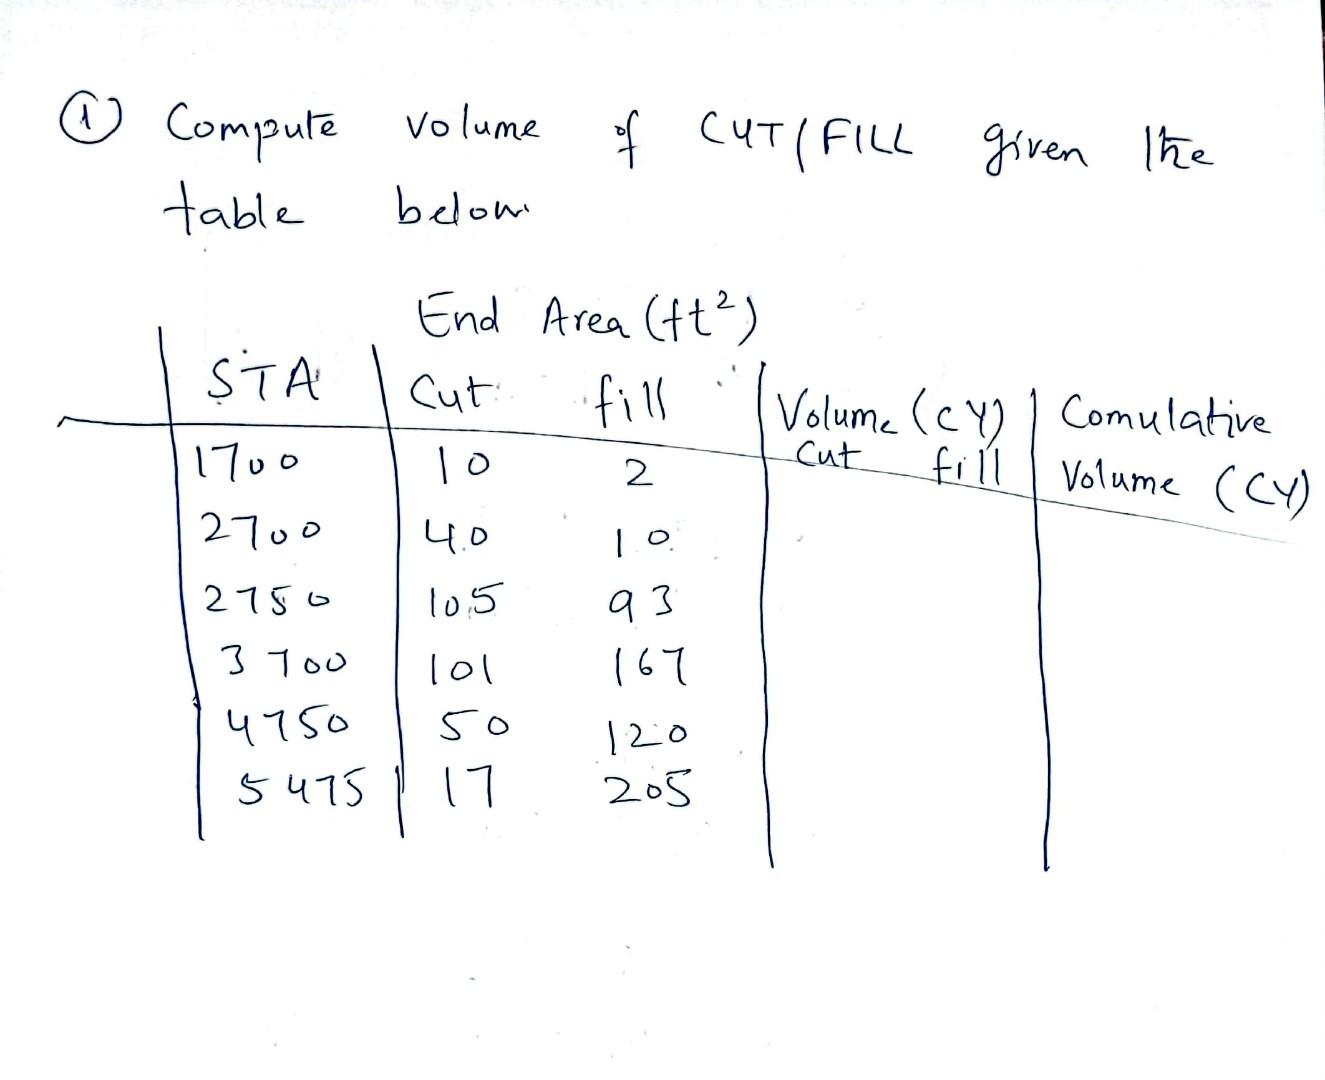 ① Compute volume of CUT/FILL given the
table below
End Area (ft²)
STA Cut fill Volume (CY) Comulative
Cut fill Volume (CY)
1700 10 2
2700 40 10
2750 105 93
3700 101 167
4750 50 120
5475 17 205